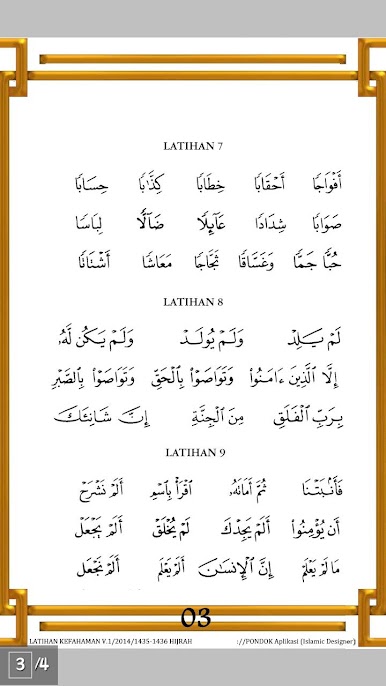 LATIHAN 7
أَفْوَاجًا أَحْقَابًا خِطَابًا كِذَّابًا حِسَابًا
صَوَابًا شِدَادًا عَآئِلًا ضَآلًّا لِبَاسًا
حُبًّا جَمًّا وَغَسَّاقًا ثَجَّاجًا مَعَاشًا أَشْتَاتًا
LATIHAN 8
لَمْ يَلِدْ وَلَمْ يُولَدْ وَلَمْ يَكُن لَّهُۥ
إِلَّا ٱلَّذِينَ ءَامَنُوا۟ وَتَوَاصَوْا۟ بِٱلْحَقِّ وَتَوَاصَوْا۟ بِٱلصَّبْرِ
بِرَبِّ ٱلْفَلَقِ مِنَ ٱلْجِنَّةِ إِنَّ شَانِئَكَ
LATIHAN 9
فَأَنۢبَتْنَا ثُمَّ أَمَاتَهُۥ ٱقْرَأْ بِٱسْمِ أَلَمْ نَشْرَحْ
أَن يُؤْمِنُوا۟ أَلَمْ يَجِدْكَ لَمْ يُخْلَقْ أَلَمْ يَجْعَلْ
مَا لَمْ يَعْلَمْ إِنَّ ٱلْإِنسَٰنَ أَلَمْ يَعْلَم أَلَمْ نَجْعَلِ
03
LATIHAN KEFAHAMAN V.1/2014/1435-1436 HIJRAH ://PONDOK Aplikasi (Islamic Designer)
3/4